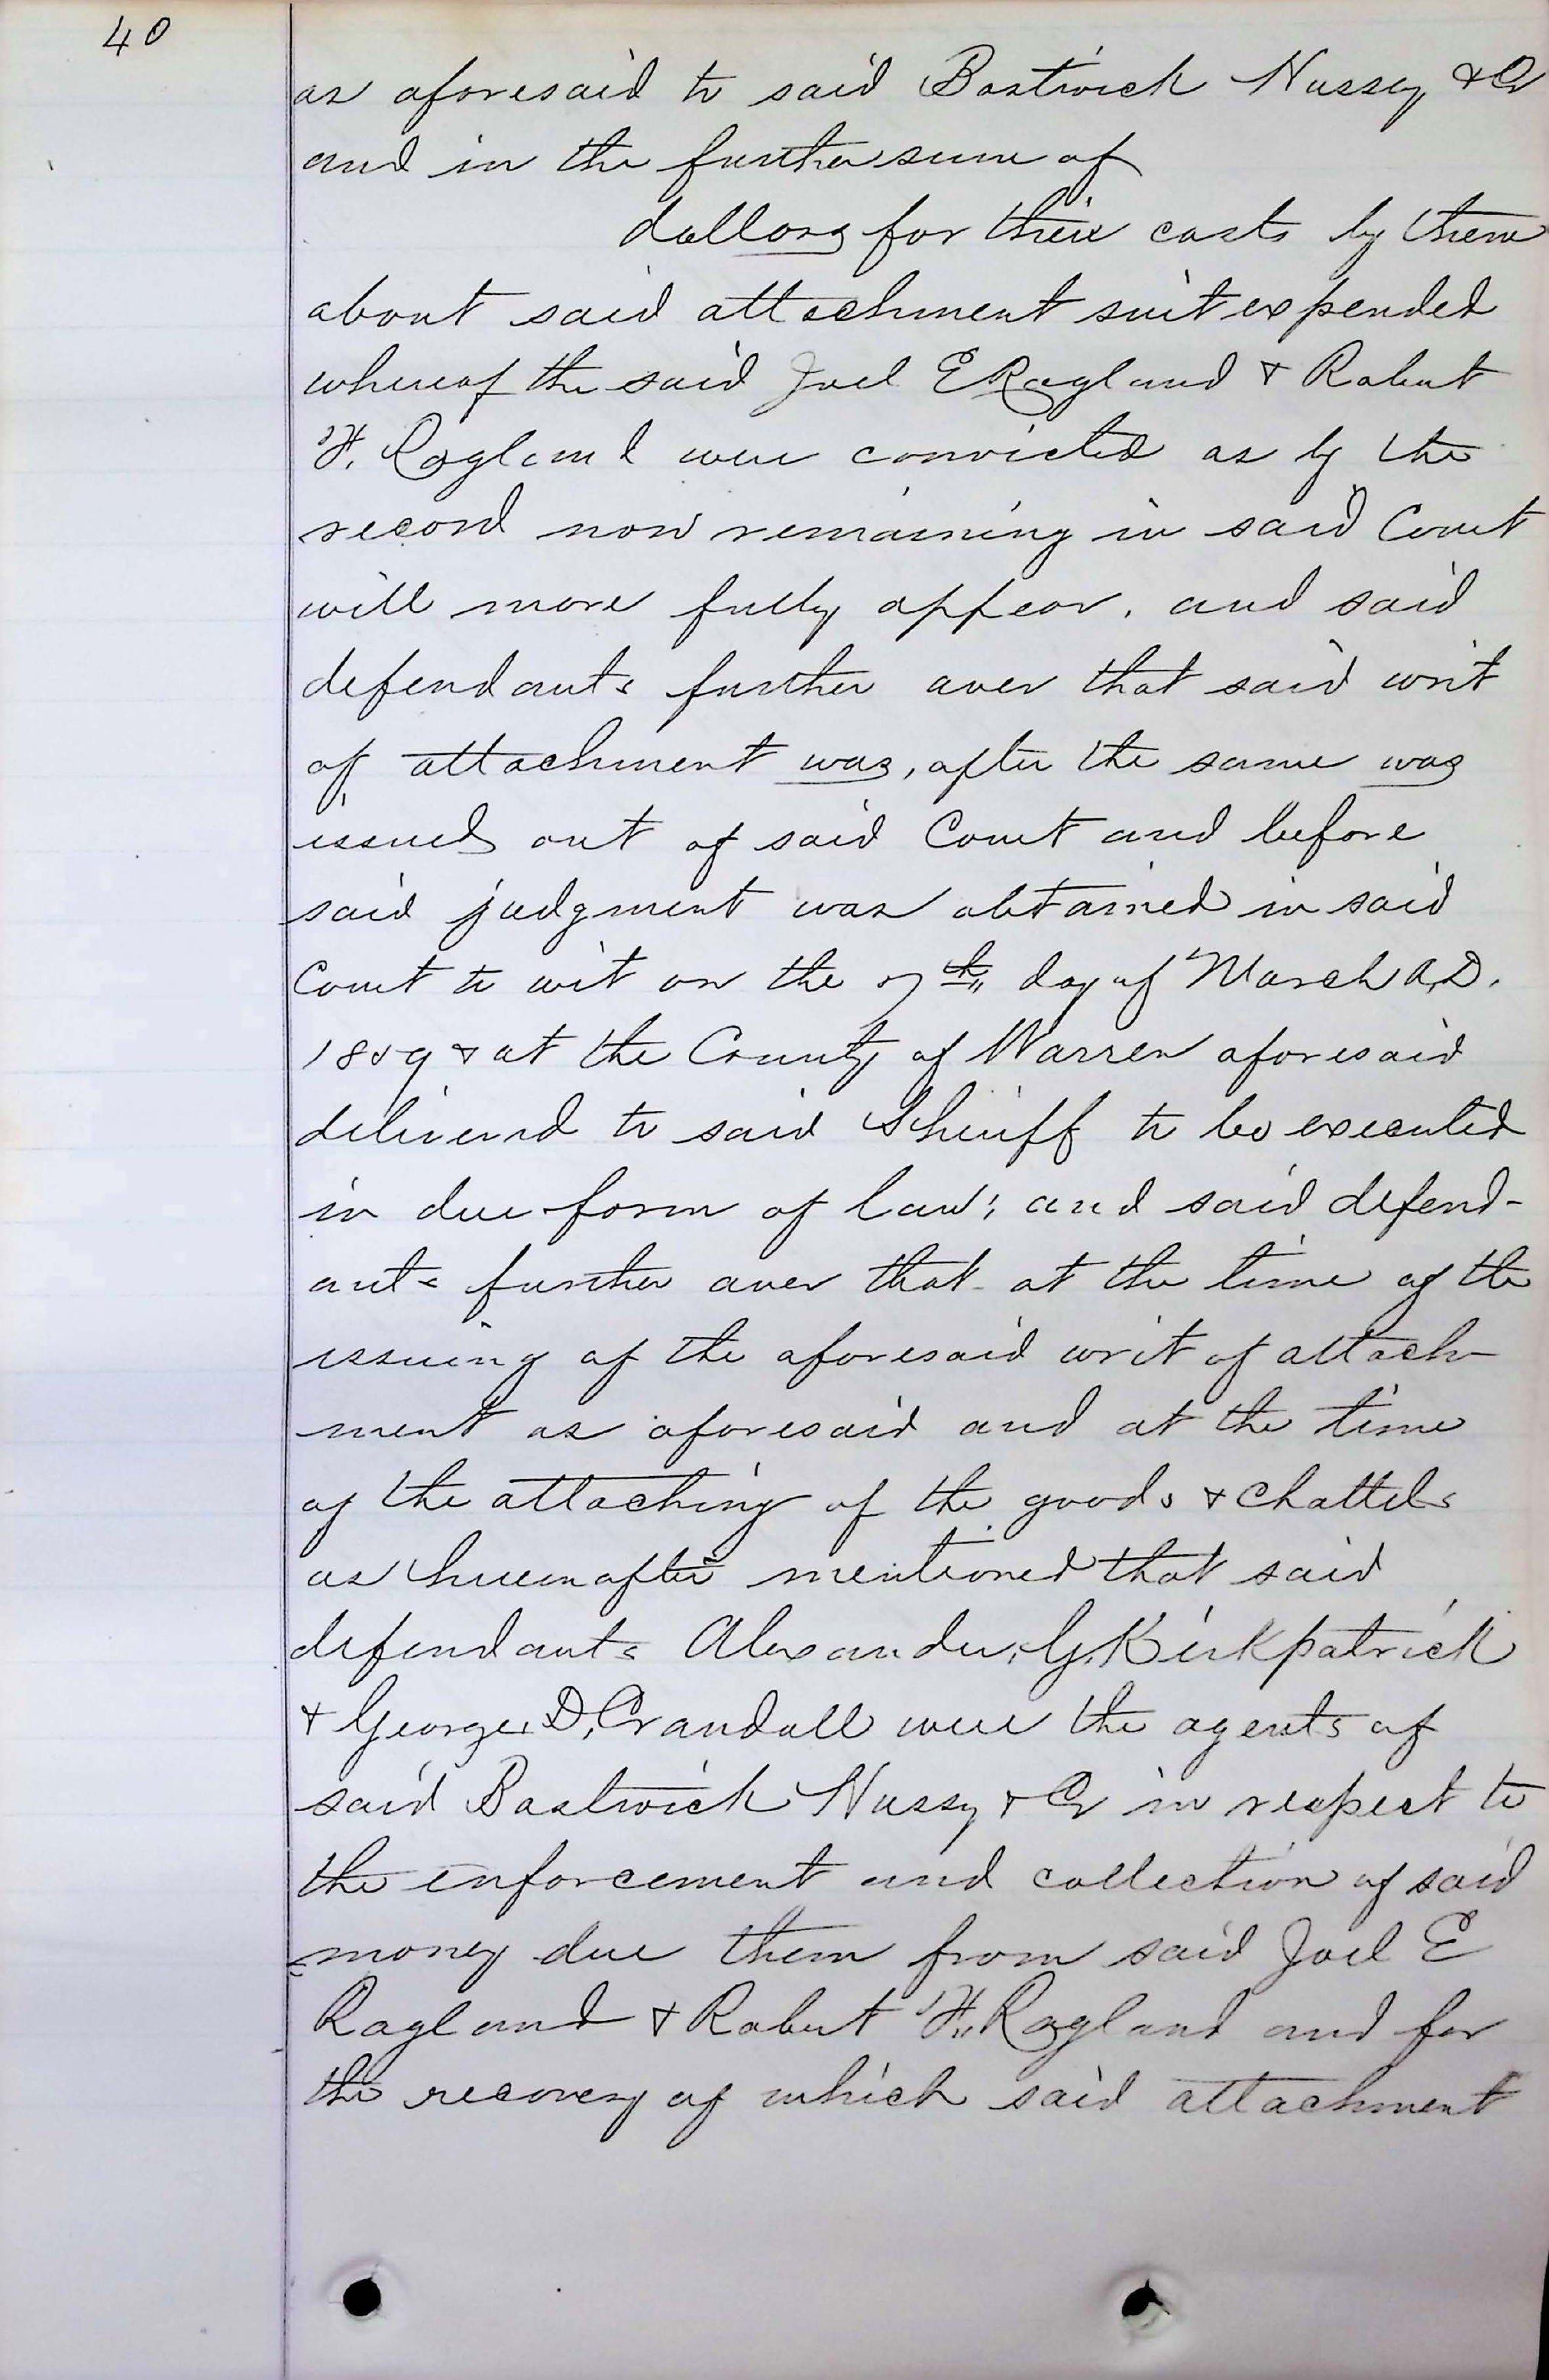 40
as aforesaid to said Bostwick Hussey & Co
and in the further sum of
dollars for their costs by them
about said attachment suit expended
whereof the said Joel E Ragland & Robert
F. Ragland were convicted as by the
record now remaining in said Court
will more fully appear. and said
defendants further aver that said writ
of attachment was, after the same was
issued out of said Court and before
said judgment was obtained in said
Court to wit on the 7th day of March A.D.
1859 & at the County of Warren aforesaid
delivered to said Sheriff to be executed
in due form of law; and said defend-
ants further aver that at the time of the
issuing of the aforesaid writ of attach-
ment as aforesaid and at the time
of the attaching of the goods & chattels
as hereinafter mentioned that said
defendants Alexander G. Kirkpatrick
& George D. Crandall were the agents of
said Bostwick Hussey & Co in respect to
the enforcement and collection of said
money due them from said Joel E
Ragland & Robert F. Ragland and for
the recovery of which said attachment